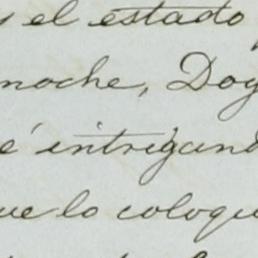 el estado
noche, Doy
é intrigand
ue lo coloqu